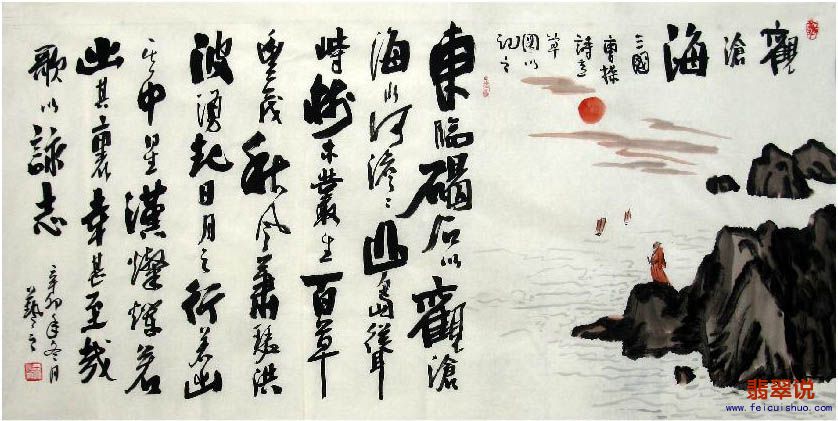 觀滄海
三國
曹操
詩意
草
圖以
記之
東臨碣石以觀滄
海水何澹〻山島聳
峙樹木叢生百草
豐茂秋風蕭瑟洪
波湧起日月之行若出
其中星漢燦若
出其裏幸甚至哉
歌以詠志
辛卯年冬月
翡翠说
www.feicuishuo.com